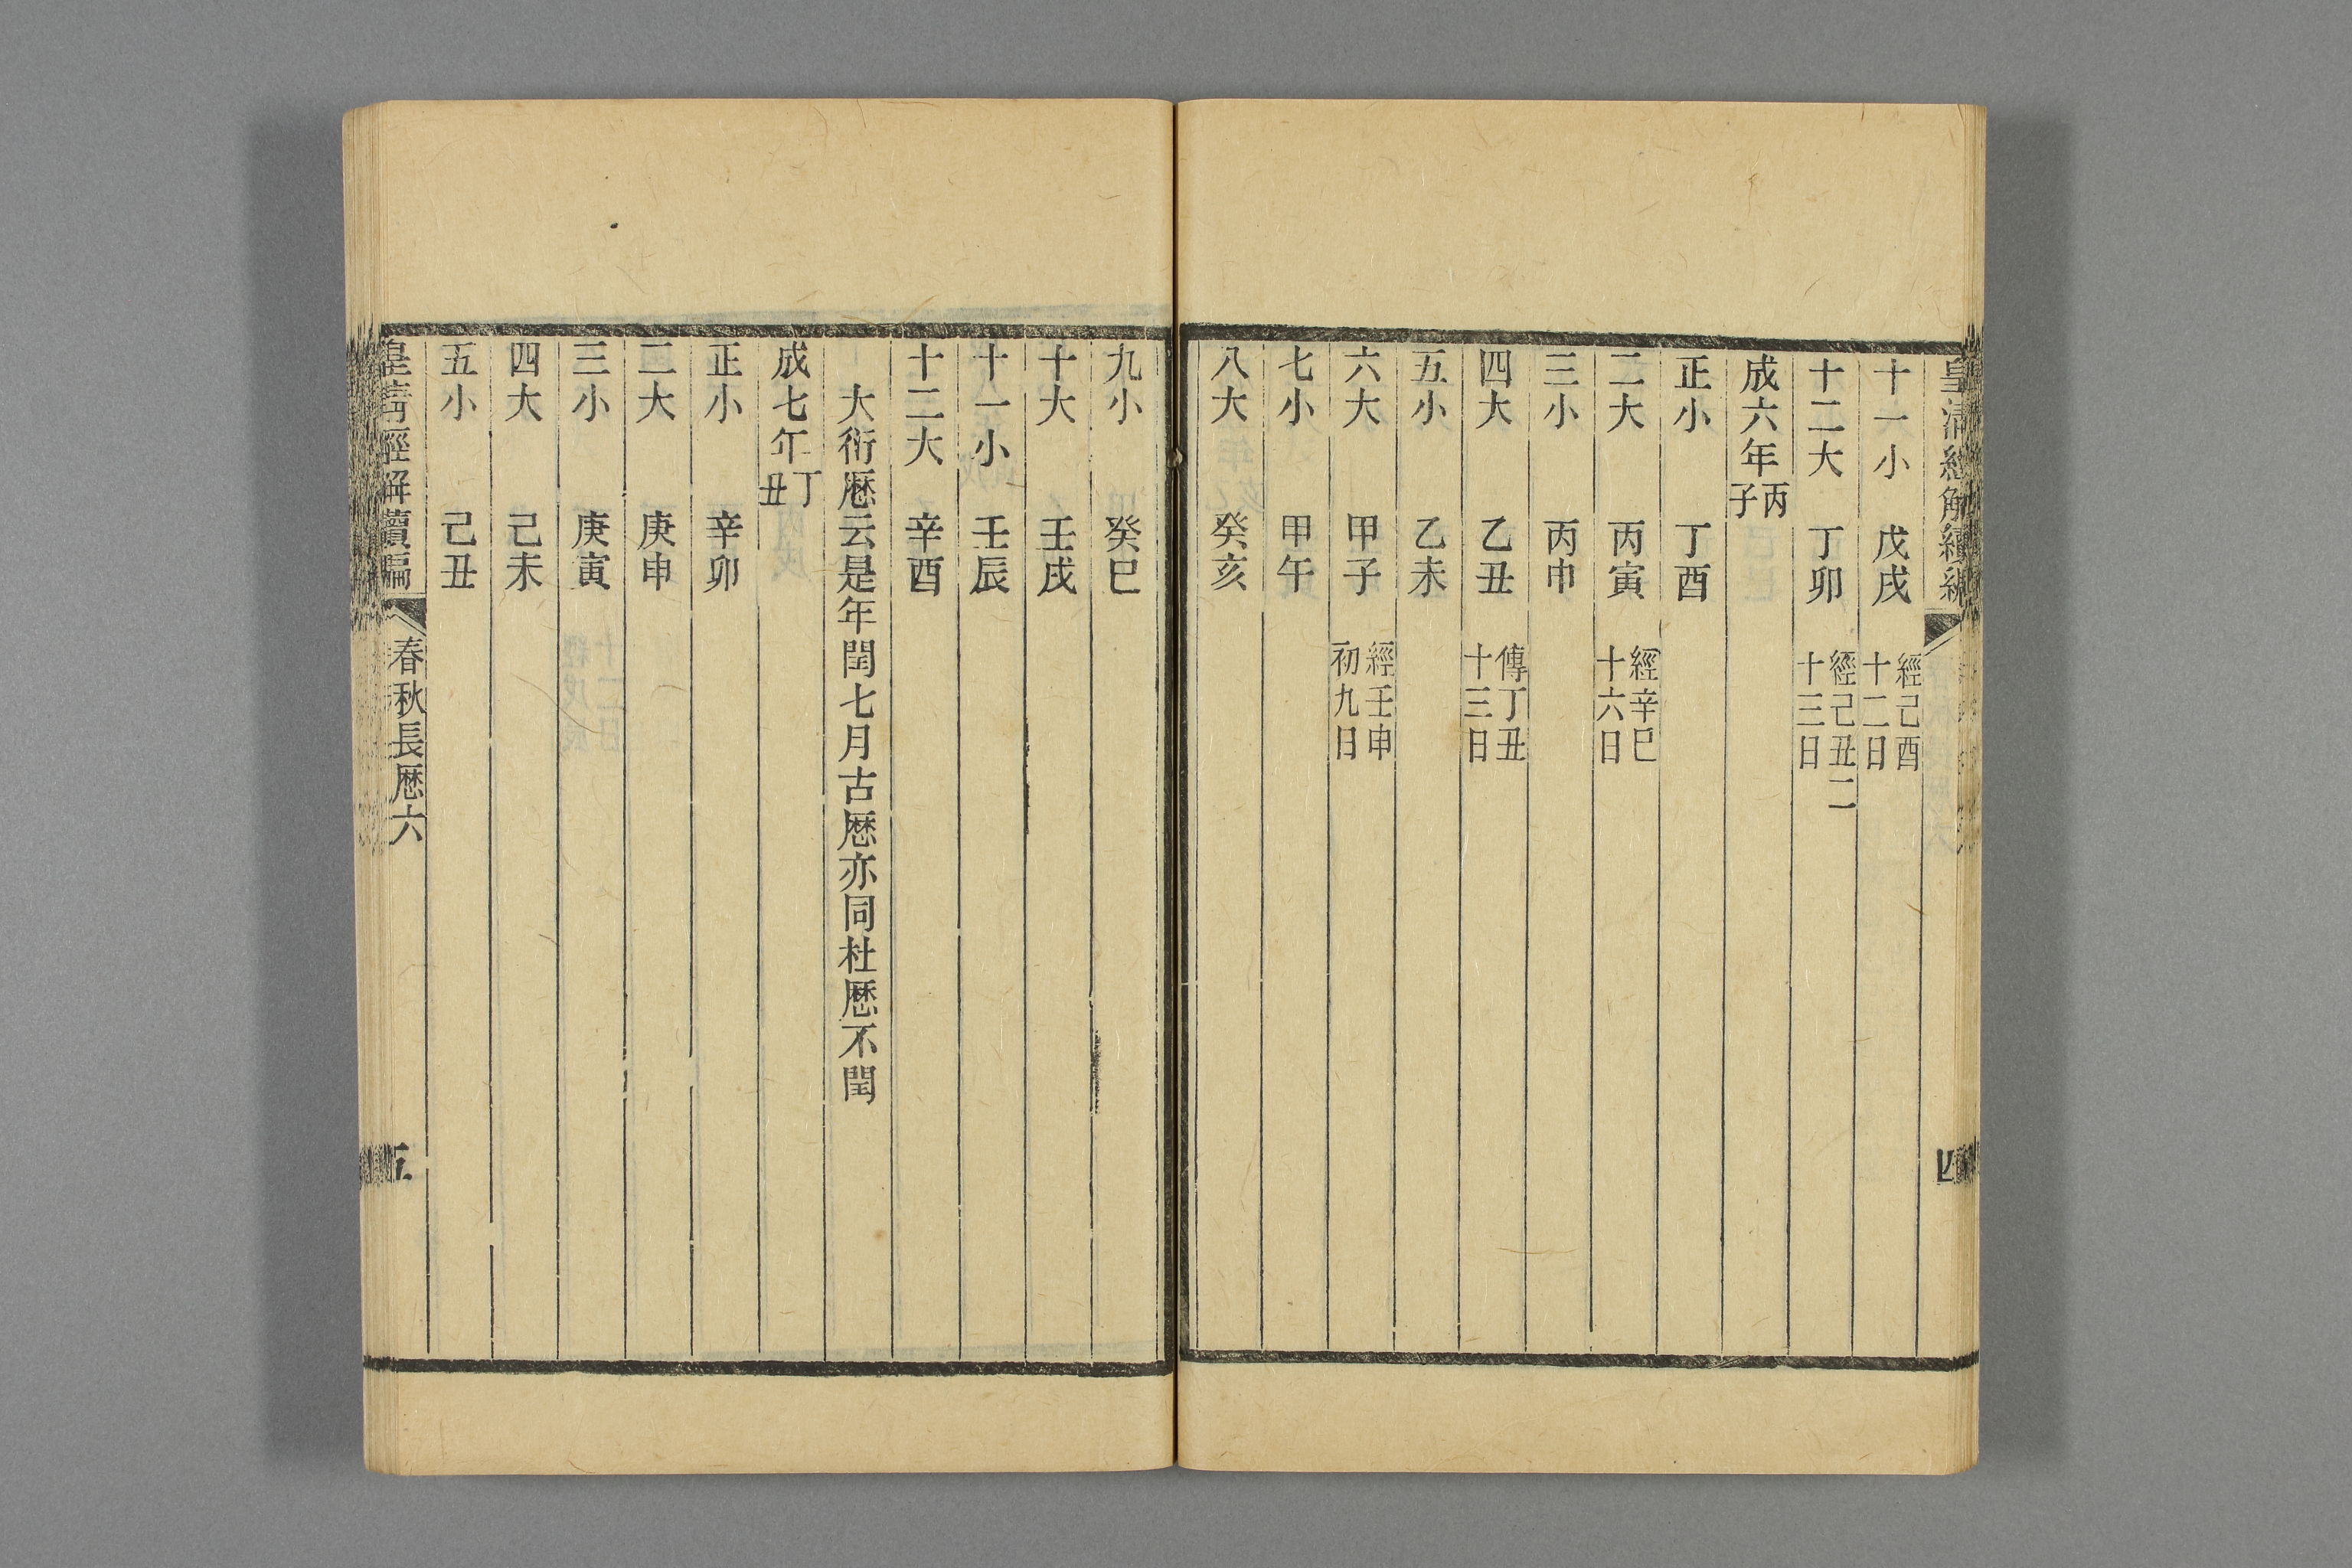 皇清經解續編
四
十一小 戊戌 經己酉十二日
十二大 丁卯 經己丑二十三日
成六年丙子
正小 丁酉
二大 丙寅 經辛巳十六日
三小 丙申
四大 乙丑 傳丁丑十三日
五小 乙未
六大 甲子 經壬申初九日
七小 甲午
八大 癸亥
九小 癸巳
十大 壬戌
十一小 壬辰
十二大 辛酉
大衍厯云是年閏七月古厯亦同杜厯不閏
成七年丁丑
正小 辛卯
二大 庚申
三小 庚寅
四大 己未
五小 己丑
皇清經解續編
春秋長厯六
五